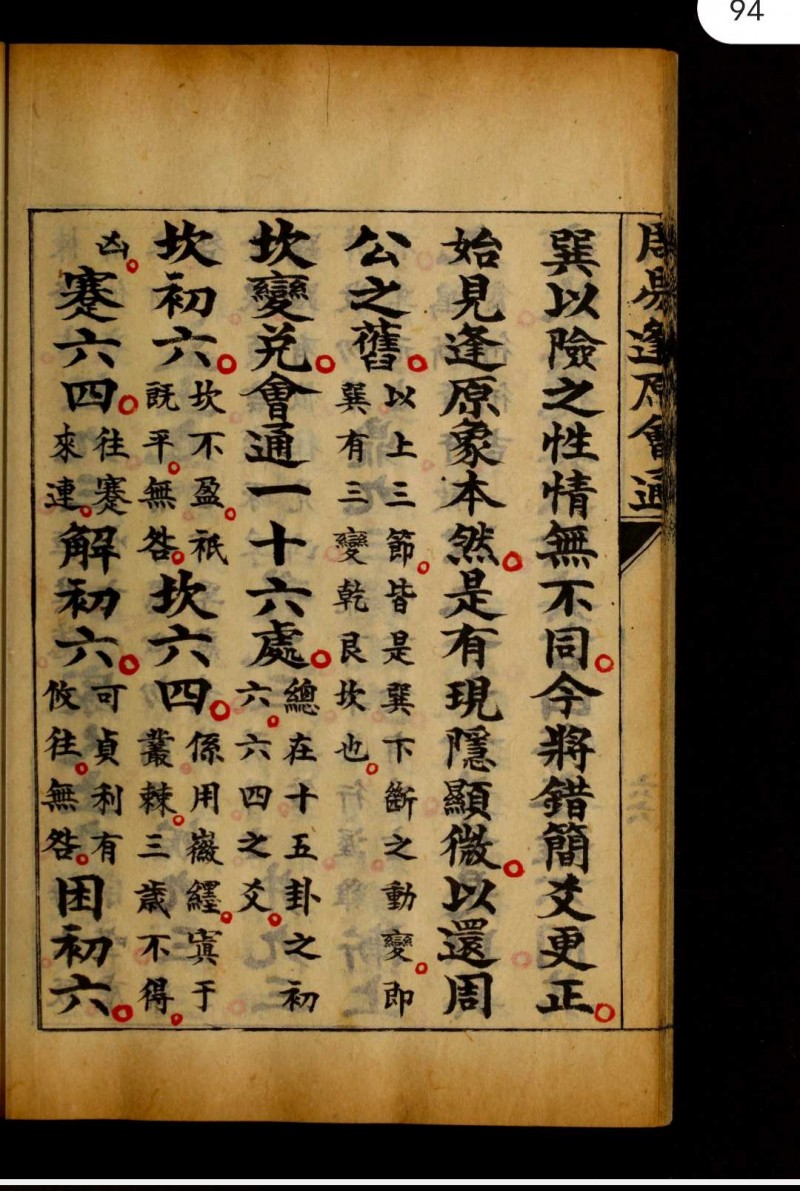 94
周易逢原會通
巽以險之性情無不同。今將錯簡爻更正。
始見逢原象本然。是有現隱顯微。以還周
公之舊。
以上三節。皆是巽下斷之動變。即
巽有三變乾艮坎也。
坎變兌。會通一十六處。
總在十五卦之初
六。六四之爻。
坎初六。
坎不盈。祇
既平。無咎。
坎六四。
係用徽纆。寘于
叢棘。三歲不得。
凶。
蹇六四。
往蹇
來連。
解初六。
可貞利有
攸往。無咎。
困初六。